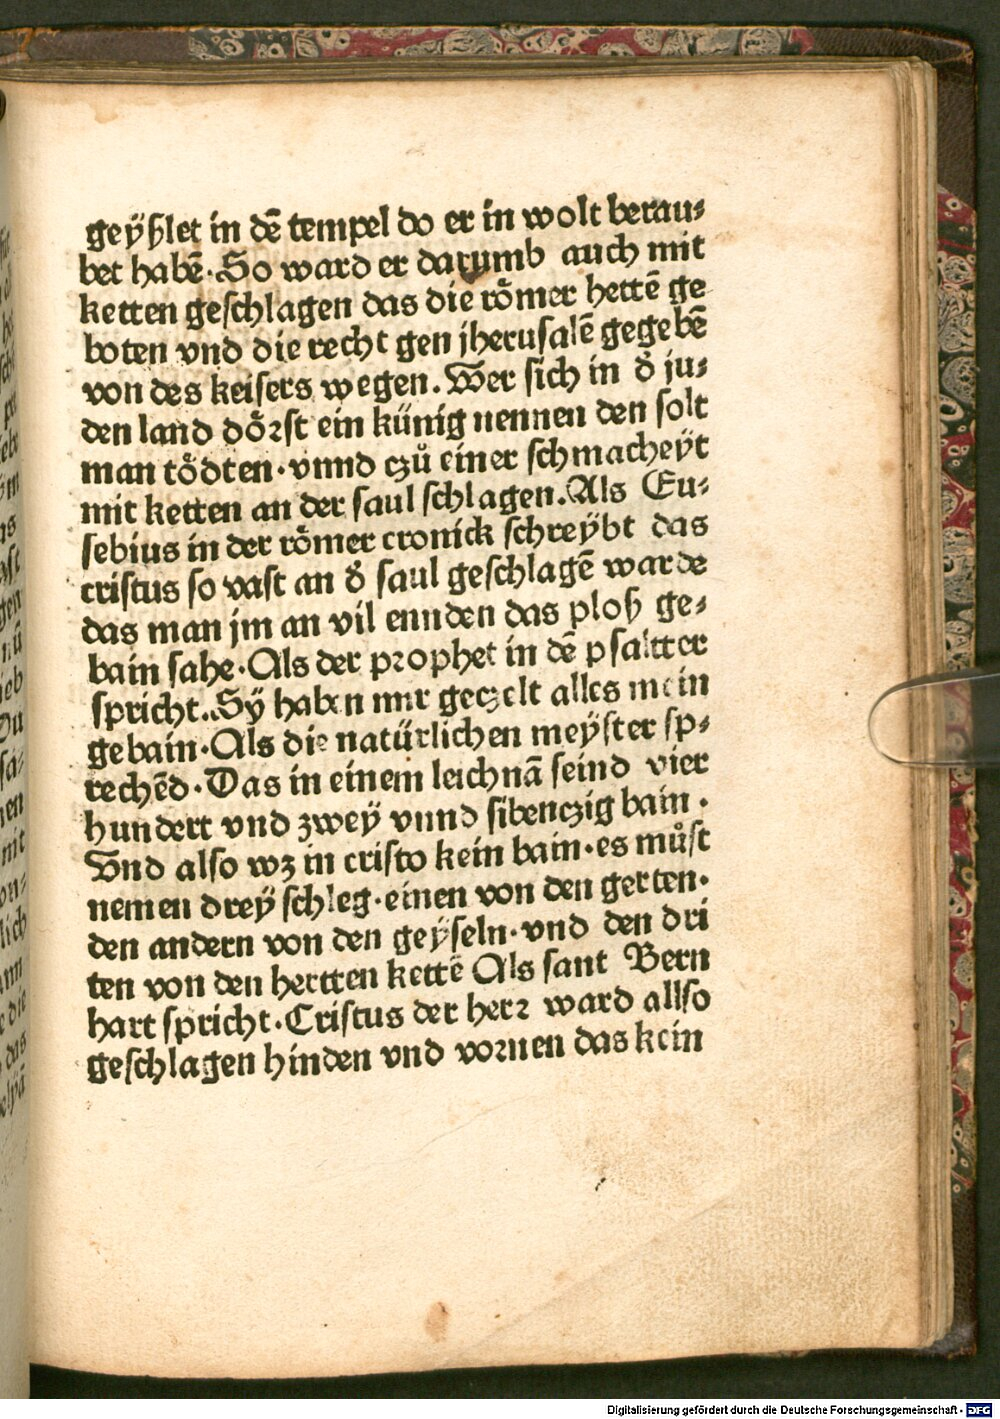 geÿßlet in dē tempel do er in wolt berau⸗
bet habē·So ward er darumb auch mit
ketten geſchlagen das die roͤmer hettē ge
boten vnd die recht gen jheruſalē gegebē
von des keiſers wegen. Wer ſich in d̄ ju⸗
den land doͤꝛſt ein künig nennen den ſolt
man toͤdten·vnnd czuͦ einer ſchmacheÿt
mit ketten an der ſaul ſchlagen.Als Eu⸗
ſebius in der roͤmer cronick ſchreÿbt das
criſtus ſo vaſt an d̄ ſaul geſchlagē warde
das man jm an vil ennden das ploß ge⸗
bain ſahe·Als der pꝛophet in dē pſaltter
ſpricht.Sÿ haben mir geczelt alles mein
gebain·Als die natürlichen meÿſter ſp⸗
rechēd·Das in einem leichnā ſeind vier
hundert vnd zweÿ vnnd ſibenczig bain·
Vnd alſo wz in criſto kein bain·es muͦſt
nemen dreÿ ſchleg·einen von den gerten·
den andern von den geÿſeln·vnd den dri
ten von den hertten kettē Als ſant Bern
hart ſpricht·Criſtus der herꝛ ward allſo
geſchlagen hinden vnd voꝛnen das kein
Digitalisierung gefördert durch die Deutsche Forschungsgemeinschaft - DFG